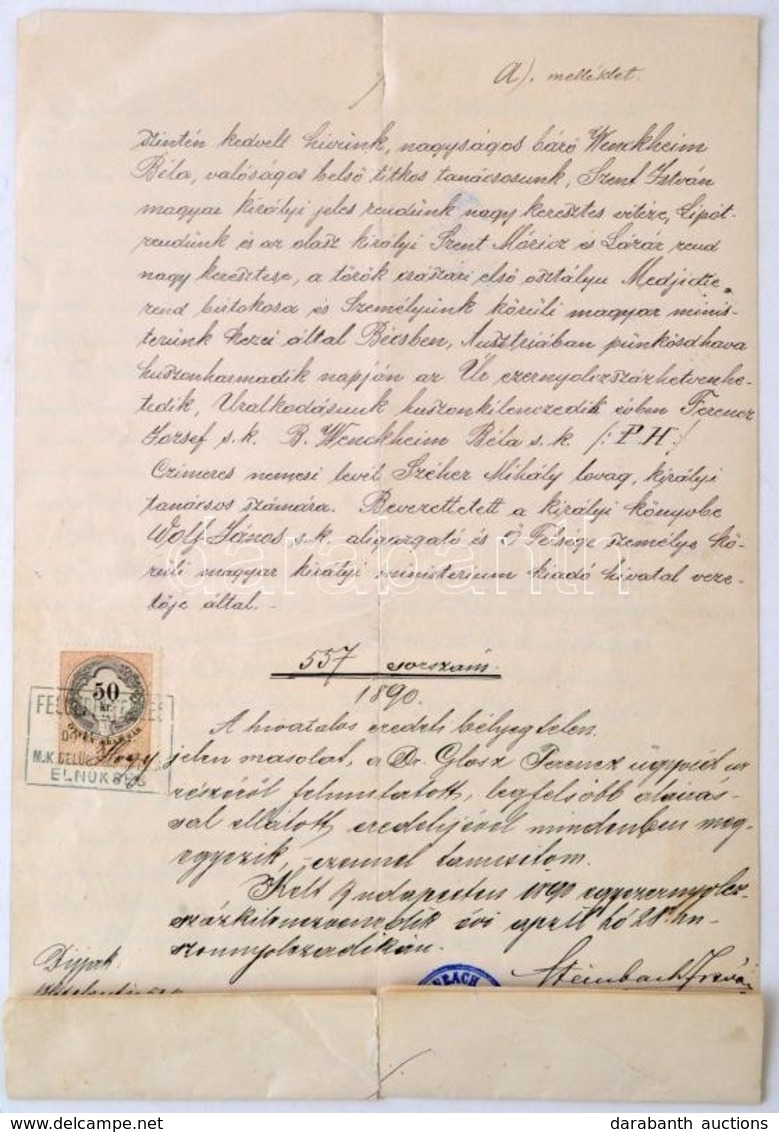 A). melléklet.
szintén kedvelt hívünk, nagyságos báró Wenckheim
Béla, valóságos belső titkos tanácsosunk, Szent István
magyar királyi jeles rendünk nagy keresztes vitéze, Lipót-
rendünk és az olasz királyi Szent Móricz és Lázár rend
nagy keresztese, a török császári első osztályu Medjidie
rend birtokosa és Személyünk körüli magyar minis-
terünk kezei által Bécsben, Ausztriában pünkösdhava
huszonharmadik napján az Úr ezernyolczszázhetvenhe-
tedik, Uralkodásunk huszonkilenczedik évben Ferencz
József s.k. B. Wenckheim Béla s.k. /: P H :/
Czimeres nemesi levél Széher Mihály lovag, királyi
tanácsos számára. Bevezettetett a királyi könyvbe
Wolf János s.k. aligazgató és Ő Felsége személye kö-
rüli magyar királyi ministerium kiadó hivatal veze-
tője által.-
557 sorszám.
1890.
A hivatalos eredeti bélyegtelen.
Hogy jelen másolat, a Dr. Glosz Ferencz ügyvéd ur
részéről felmutatott, legfelsőbb aláirás-
sal ellátott eredetijével mindenben meg-
egyezik, ezennel tanusitom.
Kelt Budapesten 1890 egyezernyolcz-
százkilenczvenedik évi april hó 28. hu-
szonnyolczadikán.
50
kr.
ELNÖKSÉG
Dijjak:
Steinbach István
darabanth
darabanth auctions